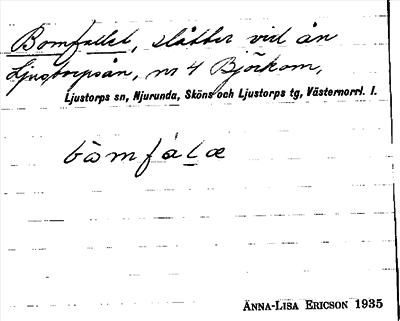 Bomfallet, slåtter vid ån
Ljustorpsån, nr 4 Björkom,
Ljustorps sn, Njurunda, Sköns och Ljustorps tg, Västernorrl. l.
bòmfálæ
ÄNNA-LISA ERICSON 1935